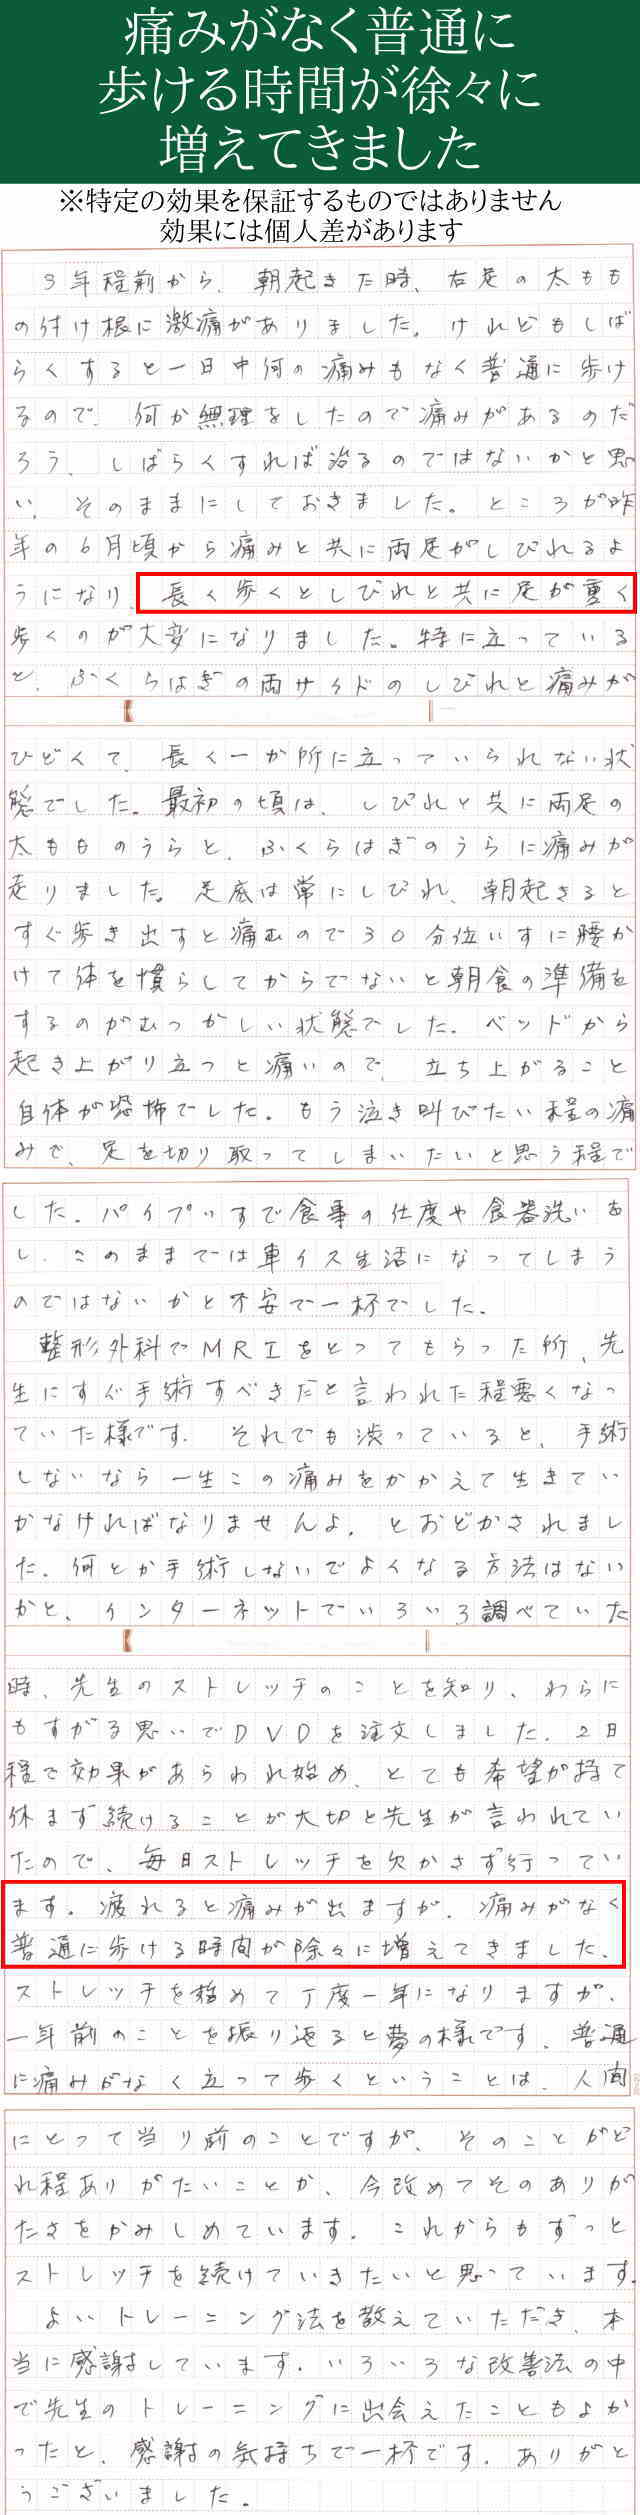 痛みがなく普通に
歩ける時間が徐々に
増えてきました
※特定の効果を保証するものではありません
効果には個人差があります
3年程前から、朝起きた時、右足の太もも
の付け根に激痛がありました。けれどもしば
らくすると一日中何の痛みもなく普通に歩け
るので、何か無理をしたので痛みがあるのだ
ろう、しばらくすれば治るのではないかと思
い、そのままにしておきました。ところが昨
年の6月頃から痛みと共に両足がしびれるよ
うになり、長く歩くとしびれと共に足が重く
歩くのが大変になりました。特に立っている
と、ふくらはぎの両サイドのしびれと痛みが
ひどくて、長く一か所に立っていられない状
態でした。最初の頃は、しびれと共に両足の
太もものうらと、ふくらはぎのうらに痛みが
走りました。足底は常にしびれ、朝起きると
すぐ歩き出すと痛むので30分位いすに腰か
けて体を慣らしてからでないと朝食の準備を
するのがむつかしい状態でした。ベッドから
起き上がり立つと痛いので、立ち上がること
自体が恐怖でした。もう泣き叫びたい程の痛
みで、足を切り取ってしまいたいと思う程で
した。パイプいすで食事の仕度や食器洗いを
し、このままでは車イス生活になってしまう
のではないかと不安で一杯でした。
整形外科でMRIをとってもらった所、先
生にすぐ手術すべきだと言われた程悪くなっ
ていた様です。それでも渋っていると、手術
しないなら一生この痛みをかかえて生きてい
かなければなりませんよ。とおどかされまし
た。何とか手術しないでよくなる方法はない
かと、インターネットでいろいろ調べていた
時、先生のストレッチのことを知り、わらに
もすがる思いでDVDを注文しました。2日
程で効果があらわれ始め、とても希望が持て
休まず続けることが大切と先生が言われてい
たので、毎日ストレッチを欠かさず行ってい
ます。疲れると痛みが出ますが、痛みがなく
普通に歩ける時間が除々に増えてきました。
ストレッチを始めて丁度一年になりますが、
一年前のことを振り返ると夢の様です。普通
に痛みがなく立って歩くということは、人間
にとって当り前のことですが、そのことがど
れ程ありがたいことか、今改めてそのありが
たさをかみしめています。これからもずっと
ストレッチを続けていきたいと思っています。
よいトレーニング法を教えていただき、本
当に感謝しています。いろいろな改善法の中
で先生のトレーニングに出会えたこともよか
ったと、感謝の気持ちで一杯です。ありがと
うございました。